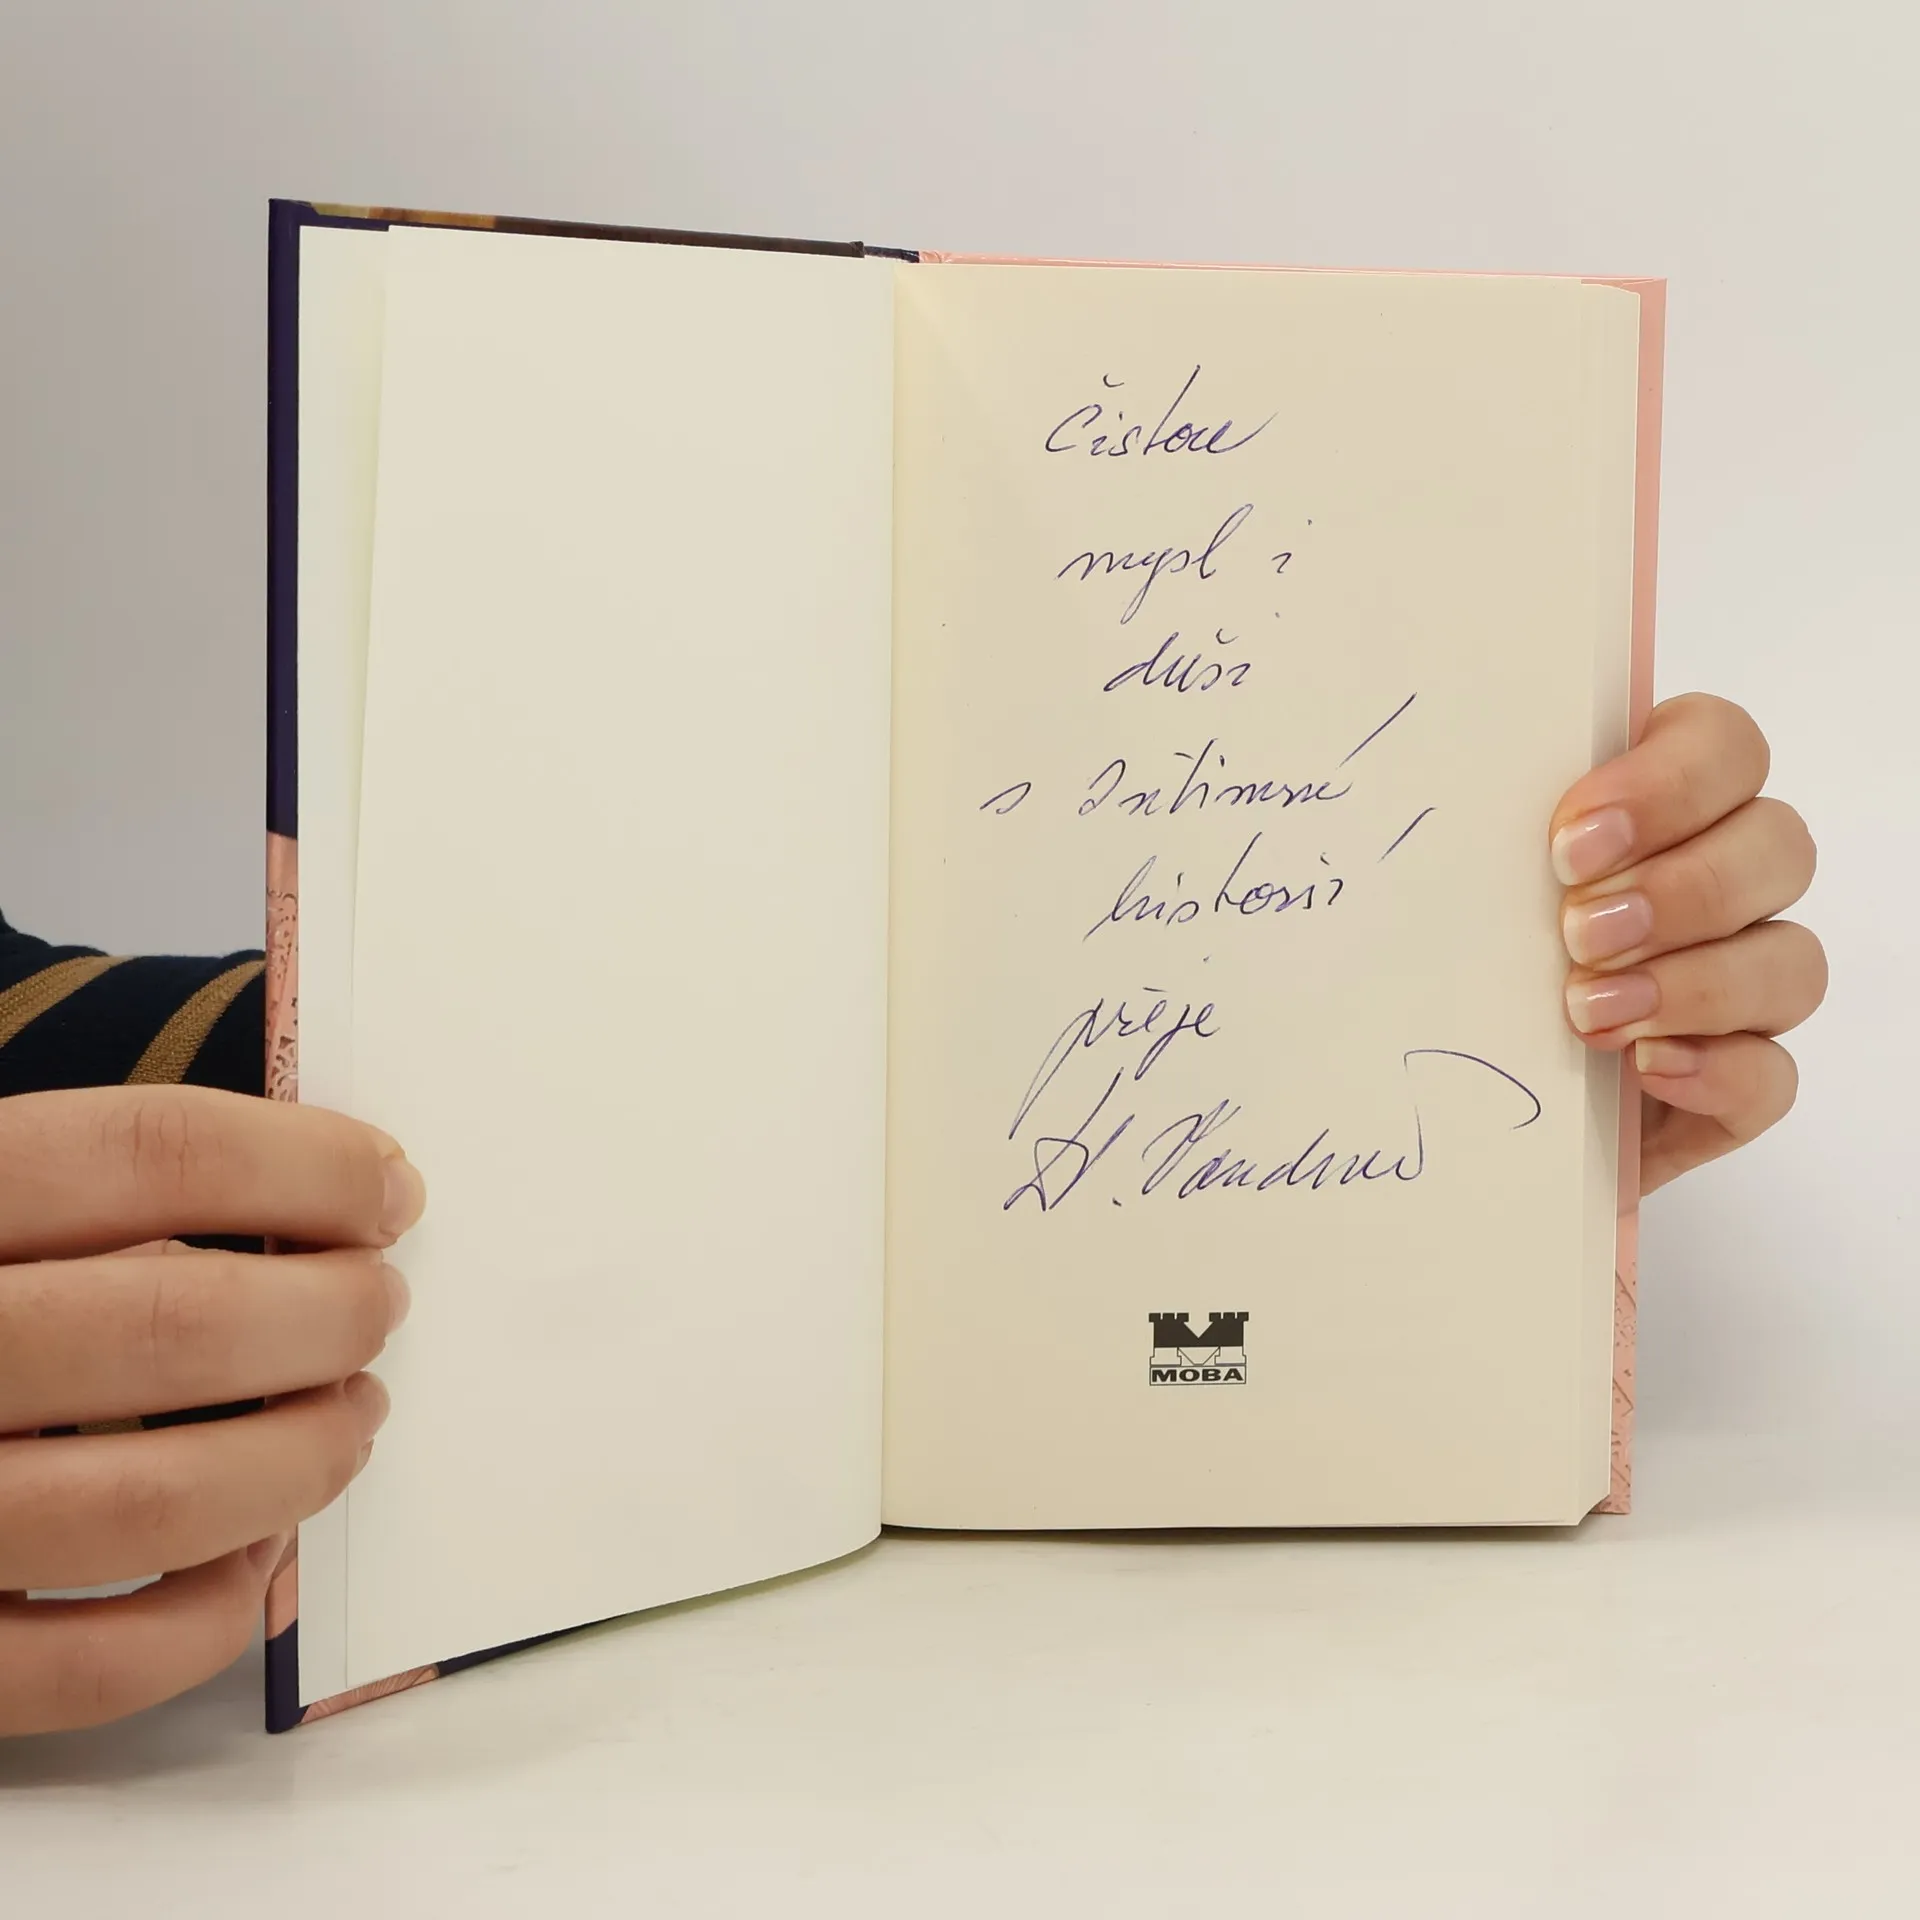 Čistou
mysl i
duši
s Intimní
historií
přeje
H. Vondruš
MOBA